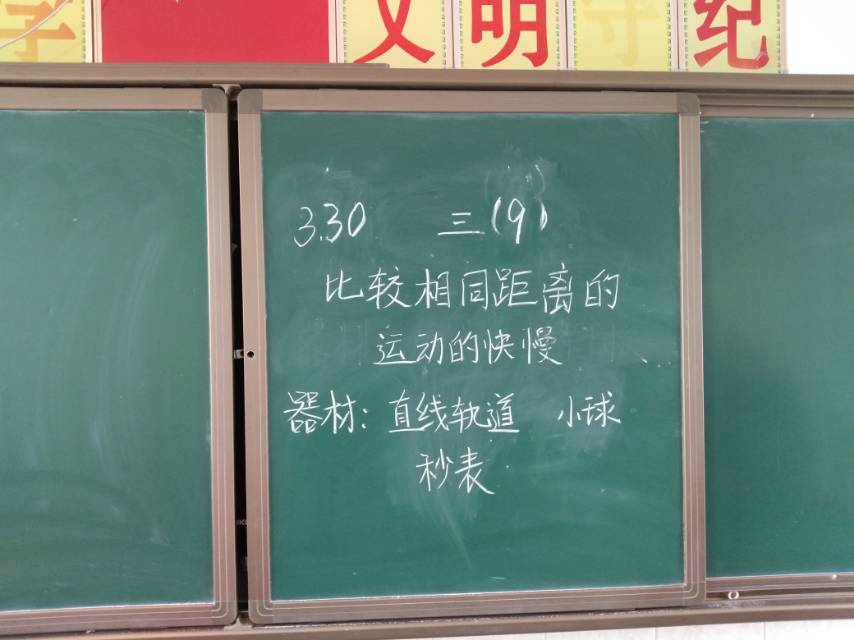 字 文明 守纪
3.30 三(9)
比较相同距离的
运动的快慢
器材: 直线轨道 小球
秒表